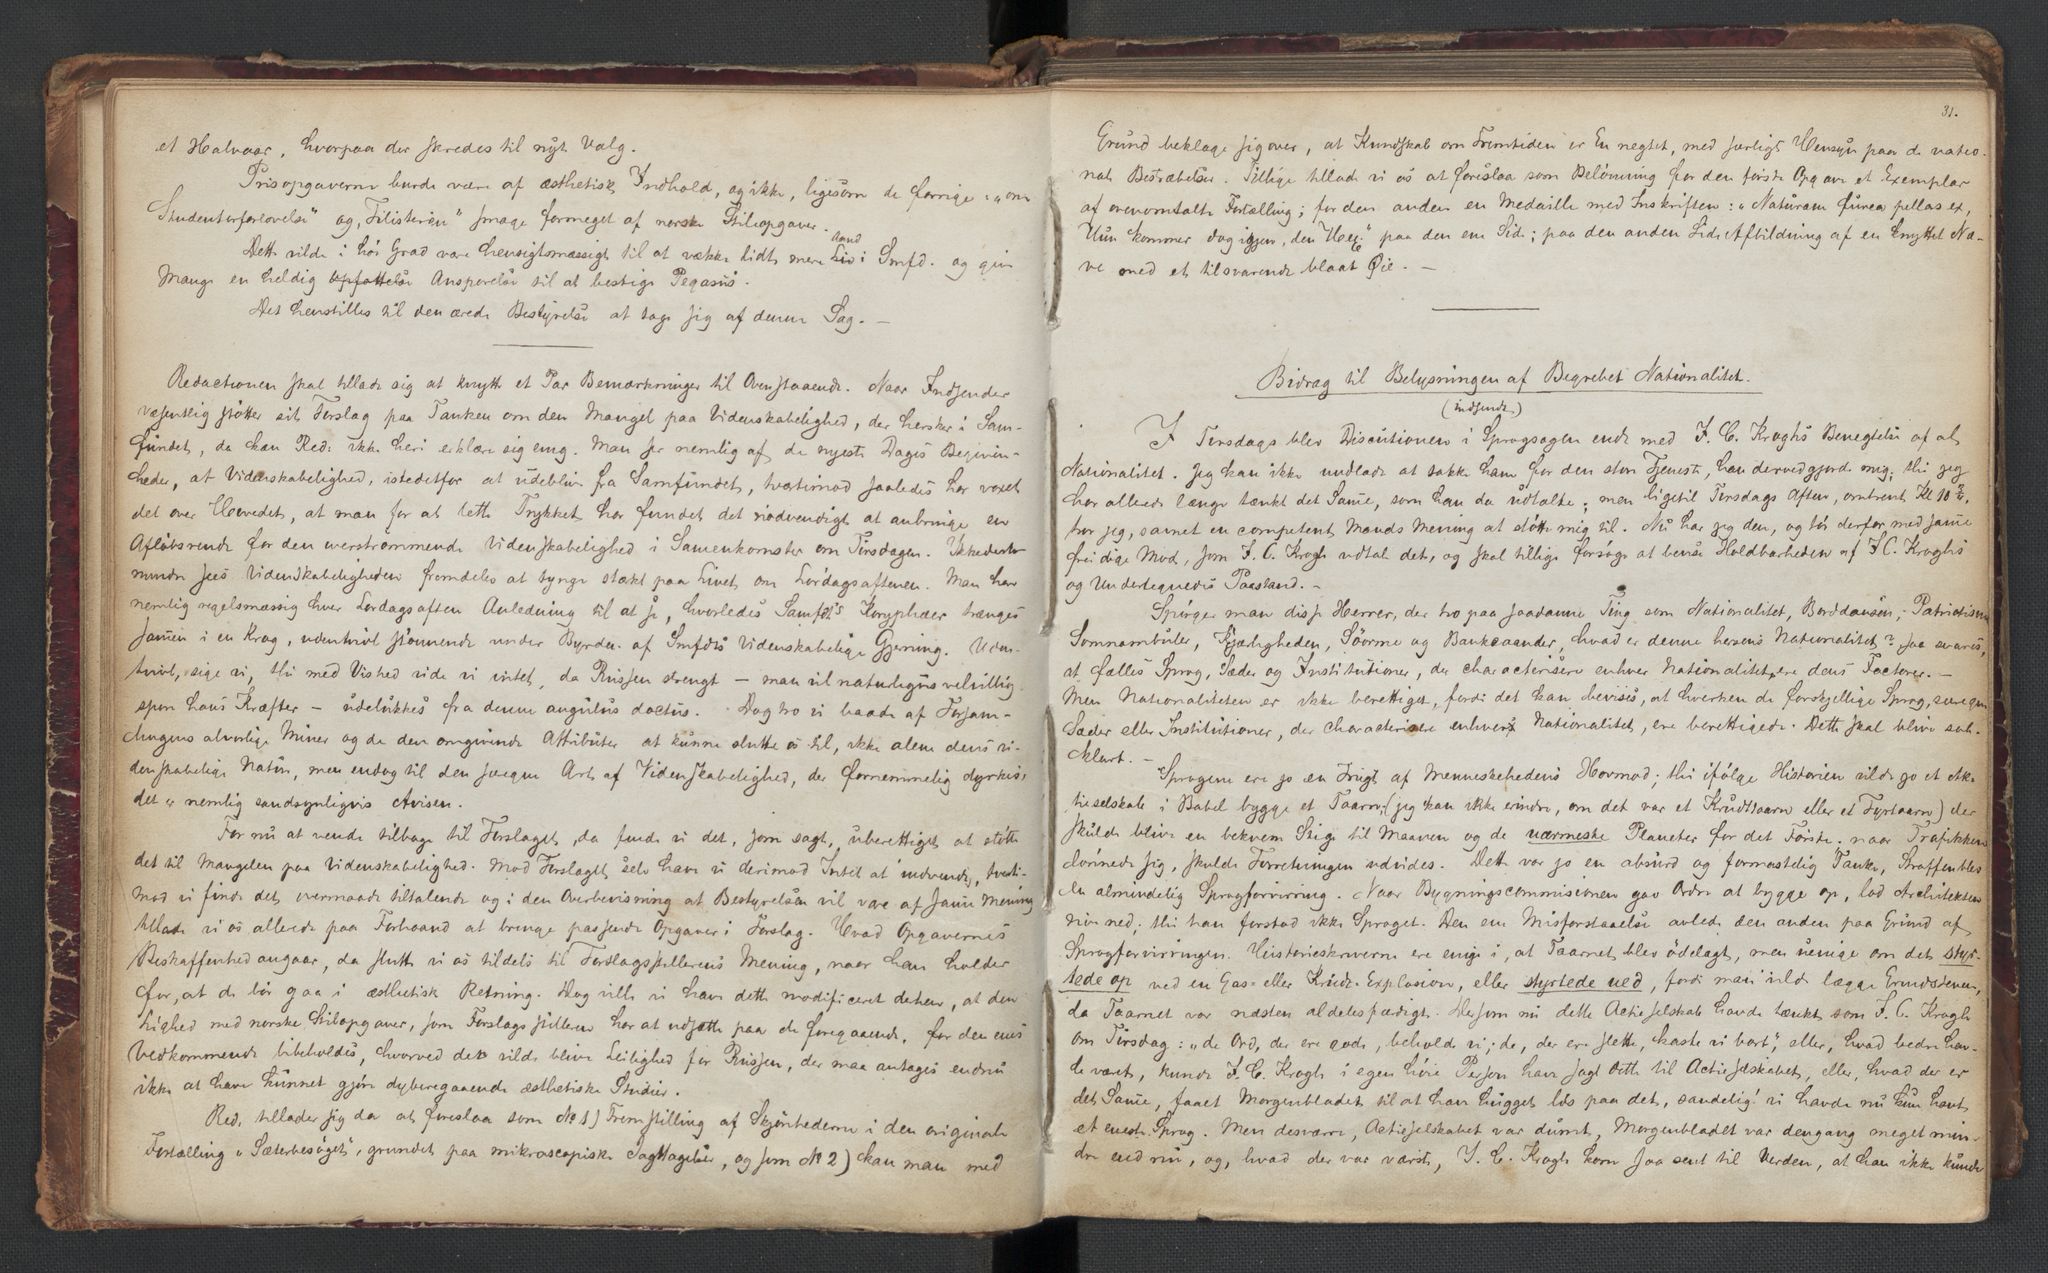 et Halvaar, hvorpaa der skredes til nyt Valg.
Prisopgaverne burde være af æsthetisk Indhold, og ikke, ligesom de forrige: „om
Studenterforlovelse“ og „Filisteriet“ smage formeget af norske Stilopgaver.
Aand
Dette vilde i høi Grad være hensigtsmæssigt til at vække lidt mere Liv i Smfd. og give
Mange en heldig Opfattelse Ansporelse til at bestige Pegasus.
Det henstilles til den ærede Bestyrelse at tage sig af denne Sag. —
Redactionen skal tillade sig at knytte et Par Bemærkninger til Ovenstaaende. Naar Indsender
væsentlig støtter sit Forslag paa Tanken om den Mangel paa Videnskabelighed, der hersker i Sam-
fundet, da kan Red: ikke heri erklære sig enig. Man ser nemlig af de nyeste Dages Begiven-
heder, at Videnskabelighed, istedetfor at udeblive fra Samfundet, tvertimod saaledes har voxet
det over Hovedet, at man for at lette Trykket har fundet det nødvendigt at anbringe en
Afløbsrende for den overstrømmende Videnskabelighed i Samenkomster om Tirsdagen. Ikkedesto-
mindre sees Videnskabeligheden fremdeles at tynge stærkt paa Livet om Lørdagsaftenen. Man har
nemlig regelmæssig hver Lørdagsaften Anledning til at se, hvorledes Samfdts Koryphæer trænges
samen i en Krog, udentvivl stønnende under Byrden af Smfdts videnskabelige Gjerning. Uden-
tvivl, sige vi, thi med Vished vide vi intet, da Russen strengt — man vil naturligvis velvillig
spare hans Kræfter — udelukkes fra denne angulus doctus. Dog tro vi baade af Forsam-
lingens alvorlige Miner og de den omgivende Attributer at kunne slutte os til, ikke alene dens vi-
denskabelige Natur, men endog til den særegne Art af Videnskabelighed, der fornemmelig dyrkes;
det er nemlig sandsynligvis Avisen.
For nu at vende tilbage til Forslaget, da finde vi det, som sagt, uberettiget at støtte
det til Mangelen paa Videnskabelighed. Mod Forslaget selv have vi derimod Intet at indvende, tverti-
mod vi finde det overmaade tiltalende og i den Overbevisning at Bestyrelsen vil være af samme Mening
tillade vi os allerede paa Forhaand at bringe passende Opgaver i Forslag. Hvad Opgavernes
Beskaffenhed angaar, da slutte vi os tildels til Forslagsstillerens Mening, naar han holder
for, at de bør gaa i æsthetisk Retning. Dog ville vi have dette modificeret derhen, at den
Lighed med norske Stilopgaver, som Forslagsstilleren har at udsætte paa de foregaaende, for den enes
Vedkommende bibeholdes, hvorved der vilde blive Leilighed for Russen, der maa antages endnu
ikke at have kunnet gjøre dyberegaaende æsthetiske Studier.
Red. tillader sig da at foreslaa som No 1) Fremstilling af Skjønhederne i den originale
Fortælling „Sæterbesøget“, grundet paa mikroscopiske Iagttagelser, og som No 2) Kan man med
31.
Grund beklage sig over, at Kundskab om Fremtiden er En negtet, med særligt Hensyn paa de natio-
nale Bestræbelser. Tillige tillade vi os at foreslaa som Belønning for den første Opgave et Exemplar
af ovenomtalte Fortælling; for den anden en Medaille med Inskriften: „Naturam furca pellas ex,
Hun kommer dog igjen, den Hex“ paa den ene Side; paa den anden Side Afbildning af en knyttet Næ-
ve med et tilsvarende blaat Øie. —
Bidrag til Belysningen af Begrebet Nationalitet.
(indsendt)
I Tirsdags blev Discutionen i Sprogsagen endt med J. C. Kroghs Benegtelse af al
Nationalitet. Jeg kan ikke undlade at takke ham for den store Tjeneste, han derved gjorde mig; thi jeg
har allerede længe tænkt det Samme, som han da udtalte; men ligetil Tirsdags Aften, omtrent Kl 10 3/4,
har jeg savnet en competent Mands Mening at støtte mig til. Nu har jeg den, og tør derfor med samme
freidige Mod, som J. C. Krogh udtale det, og skal tillige forsøge at bevise Holdbarheden af J C. Kroghs
og Undertegnedes Paastand. —
Spørger man disse Herrer, der tro paa saadanne Ting som Nationalitet, Borddansen, Patriotisme
Somnambuler, Kjærligheden, Søorme og Bankeaander, hvad er denne herens Nationalitet? saa svares,
at fælles Sprog, Sæder og Institutioner, der characterisere enhver Nationalitet, ere dens Factorer. —
Men Nationaliteten er ikke berettiget, fordi det kan bevises, at hverken de forskjellige Sprog, særegne
Sæder eller Institutioner, der characterisere enhver Nationalitet, ere berettigede. Dette skal blive sol-
klart. —
Sprogene ere jo en Frugt af Menneskehedens Hovmod; thi ifølge Historien vilde jo et Ak-
tieselskab i Babel bygge et Taarn, (jeg kan ikke erindre, om det var et Krudttaarn eller et Fyrtaarn) der
skulde blive en bekvem Stige til Maanen og de nærmeste Planeter for det Første. naar Trafikken
lønnede sig, skulde Forretningen udvides. Dette var jo en absurd og formastelig Tanke, Straffen blev
en almindelig Sprogforvirring. Naar Bygningscommissionen gav Ordre at bygge op, lod Architekten
rive ned; thi han forstod ikke Sproget. Den ene Misforstaaelse avlede den anden paa Grund af
Sprogforvirringen. Historieskriverne ere enige i, at Taarnet blev ødelagt, men uenige om det styr-
tede op ved en Gas- eller Krudt-Explosion, eller styrtede ned, fordi man vilde lægge Grundstenen,
da Taarnet var næsten aldeles færdigt. Dersom nu dette Actieselskab havde tænkt som J. C. Krogh
om Tirsdag: „de Ord, der ere gode, beholde vi; de, der ere slette, kaste vi bort“, eller, hvad bedre hav-
de været, kunde J. C. Krogh i egen høie Person have sagt dette til Actieselskabet, eller, hvad der er
det Samme, faaet Morgenbladet til at have hugget løs paa det, sandelig! vi havde nu kun havt
et eneste Sprog. Men desværre, Actieselskabet var dumt, Morgenbladet var dengang meget min-
dre end nu, og, hvad der var værst, J. C. Krogh kom saa sent til Verden, at han ikke kunde